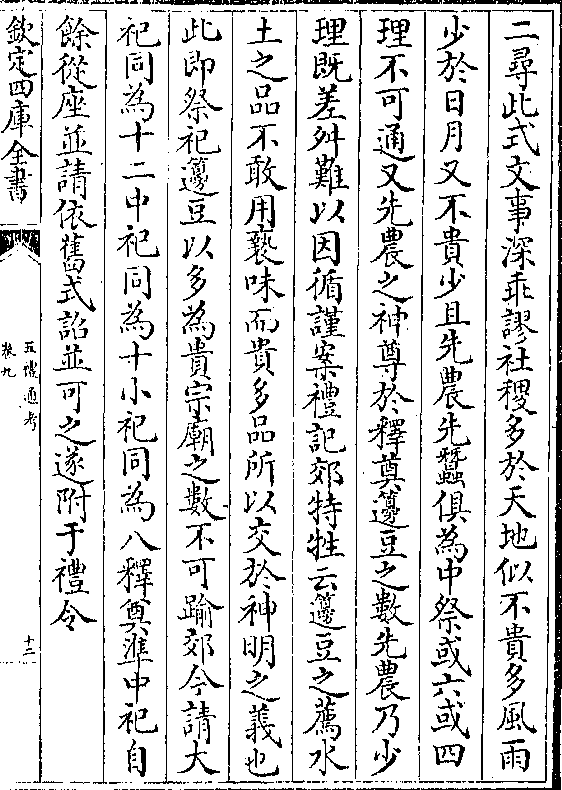 二尋此式文事深乖謬社稷多於天地似不貴多風雨
少於日月又不貴少且先農先蠶俱為中祭或六或四
理不可通又先農之神尊於釋奠籩豆之數先農乃少
理既差舛難以因循謹案禮記郊特牲云籩豆之薦水
土之品不敢用䙝味而貴多品所以交於神明之義也
此即祭祀籩豆以多為貴宗廟之數不可踰郊今請大
祀同為十二中祀同為十小祀同為八釋奠準中祀自
餘從座並請依舊式詔並可之遂附于禮令
欽定四庫全書
五禮通考
卷九
十二